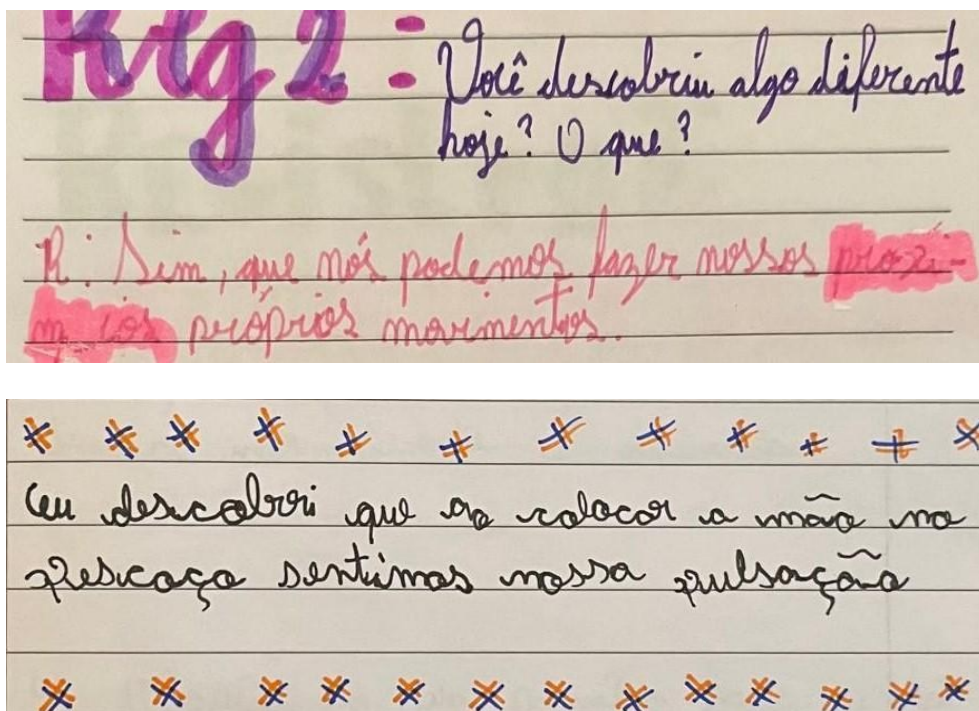 Prg 2 : Você descobriu algo diferente
hoje? O que?
R: Sim, que nós podemos fazer nossos proxi-
m cós próprios movimentos.
Eu descobri que ao colocar a mão no
pescoço sentimos nossa pulsação